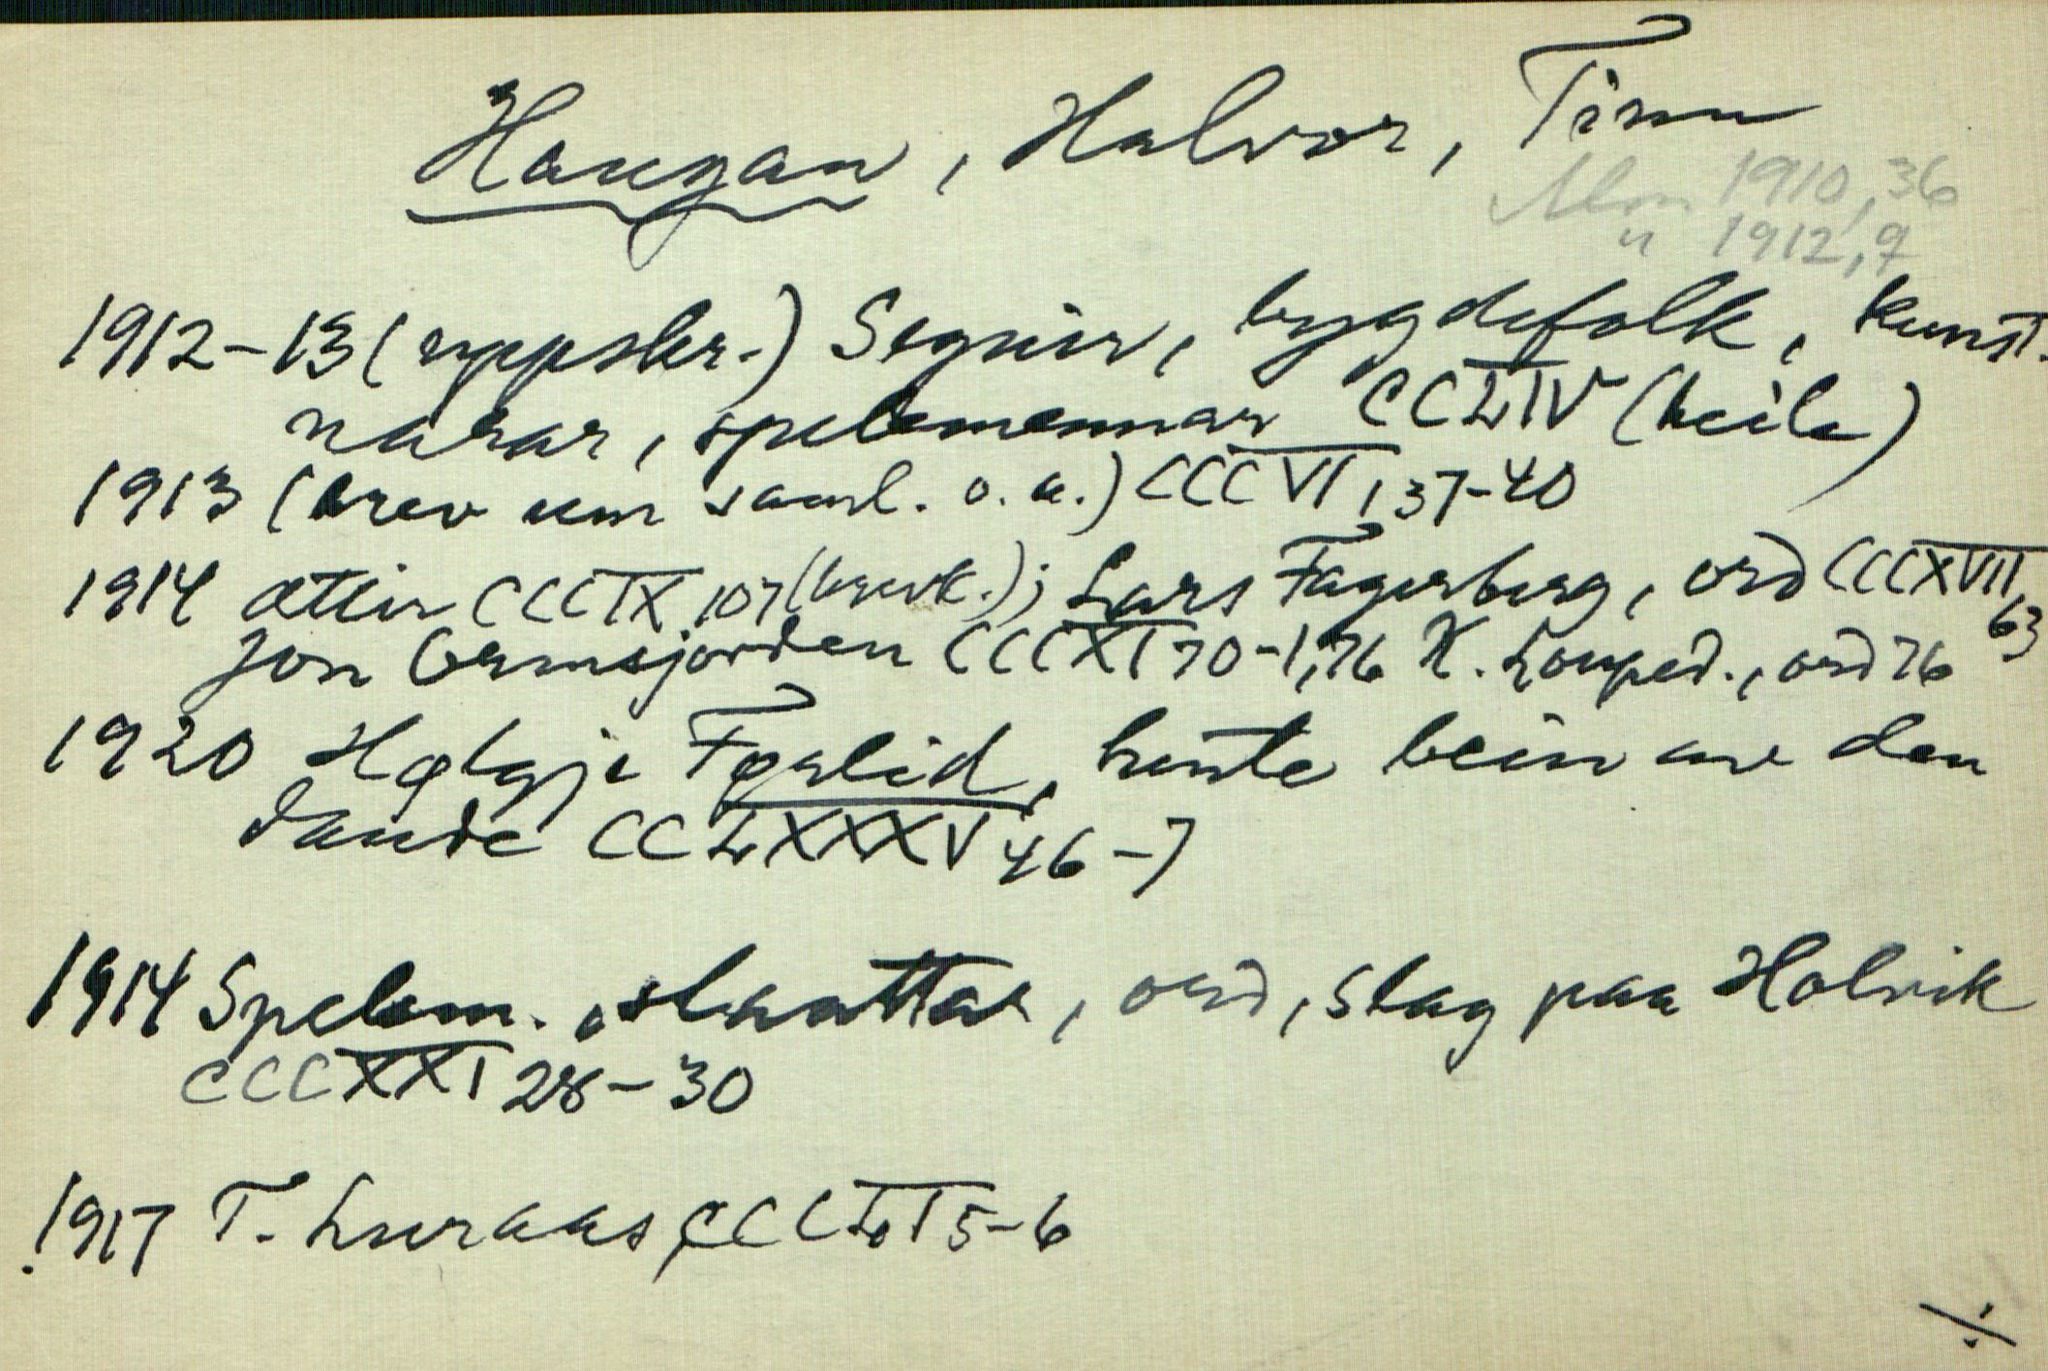 Haugan, Halvor, Tinn
1910, 36
" 1912, 9
1912-13 (uppskr.) Segner, bygdefolk, kunst-
narar, spelemennar CCLIV (heile)
1913 (brev um saml. o. a.) CCCVI, 37-40
1914 ætter CCCIX 107 (brevk.); Lars Fagerberg, ord CCCXVII,
63
Jon Ormsjorden CCCXI 70-1, 76 K. Louped., ord 76
1920 Hølgje Førlid, hente bein av den
daude CCLXXXV 46-7
1914 Spelem., slaattar, ord, slag paa Holvik
CCCXXI 28-30
1917 T. Luraas CCCLI 5-6
÷